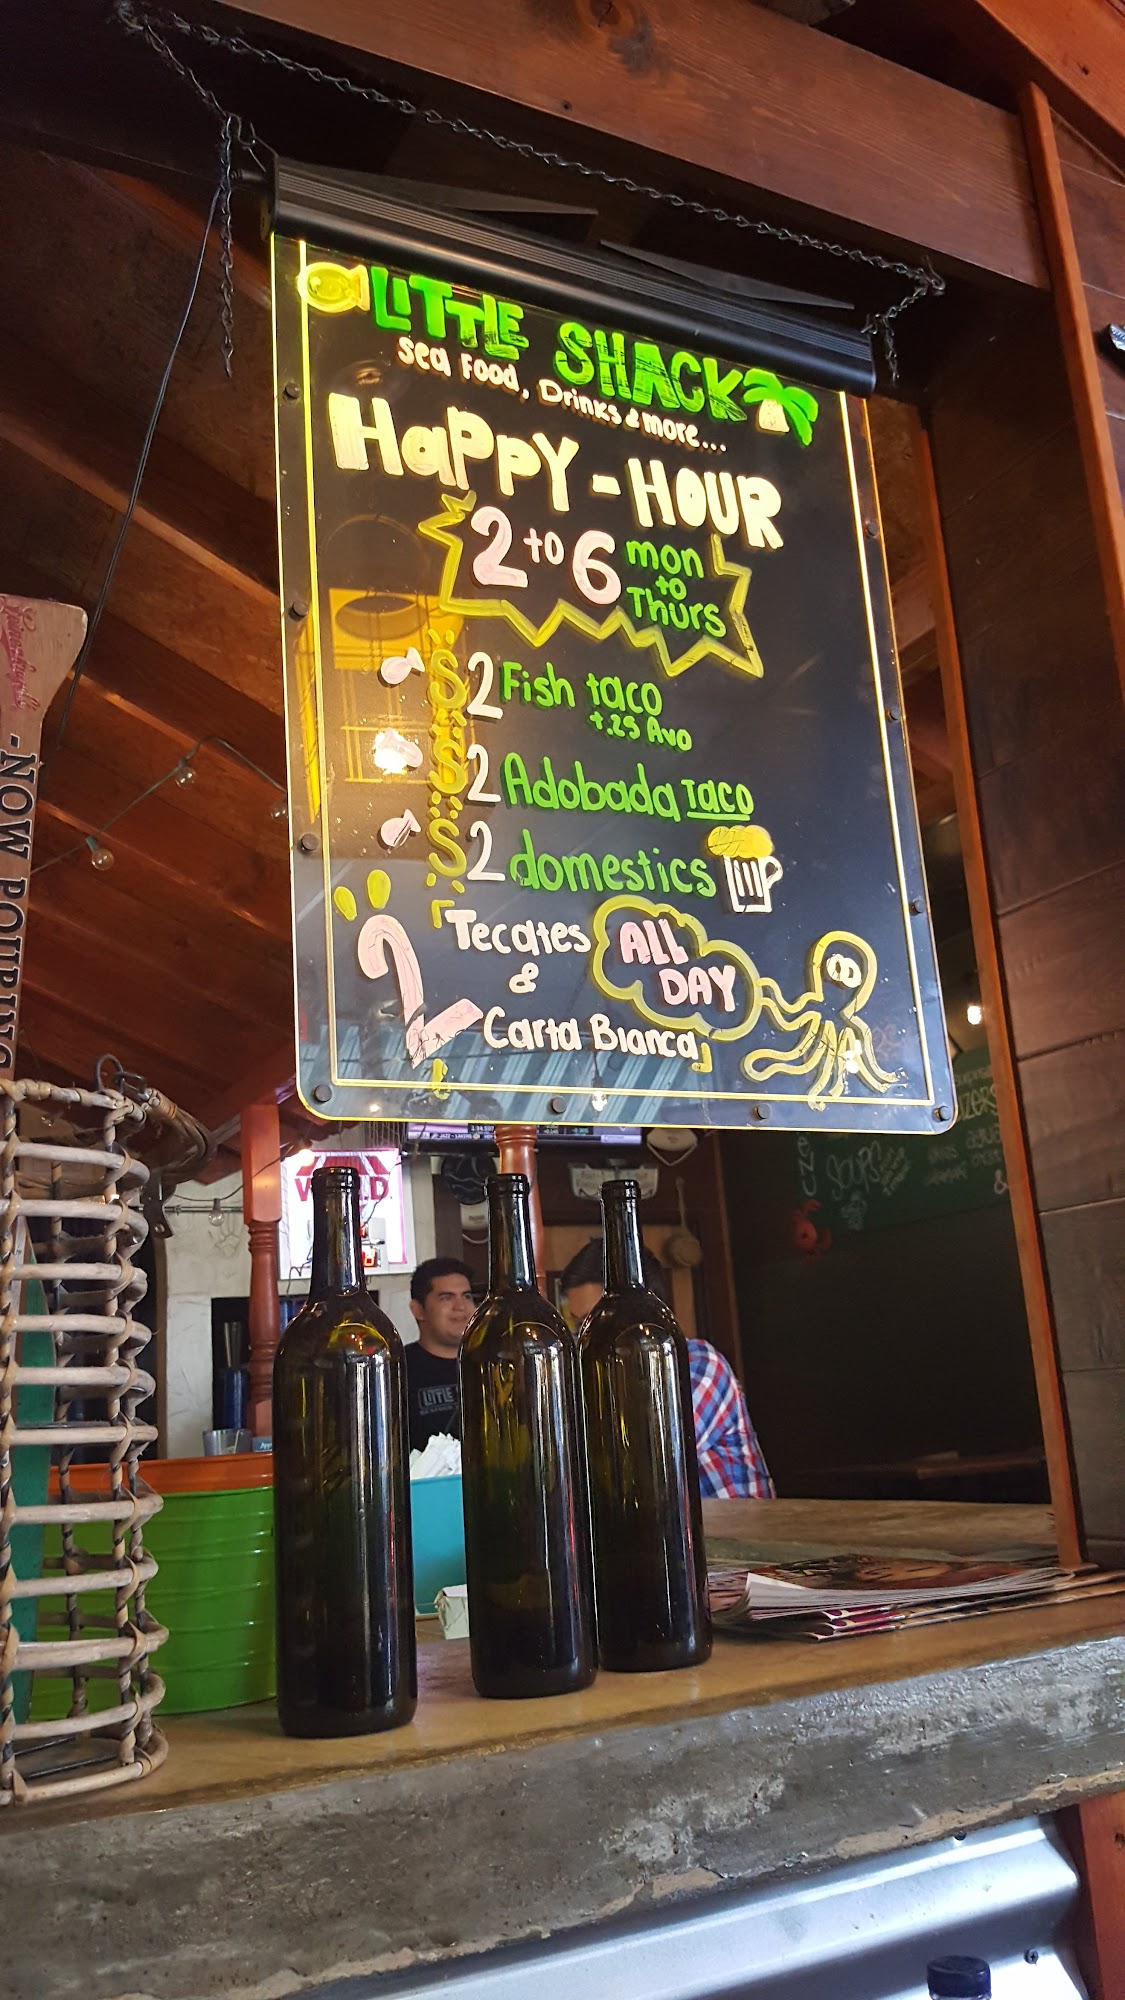 LITTLE SHACK
Sea Food, Drinks & more...
HaPPY - HOUR
2 to 6 mon
to
Thurs
$2 Fish taco
+.25 Avo
$2 Adobada TACO
$2 domestics
2 Tecates ALL
& DAY
Carta Blanca
- NOW POURING
LITTLE
SOUPS